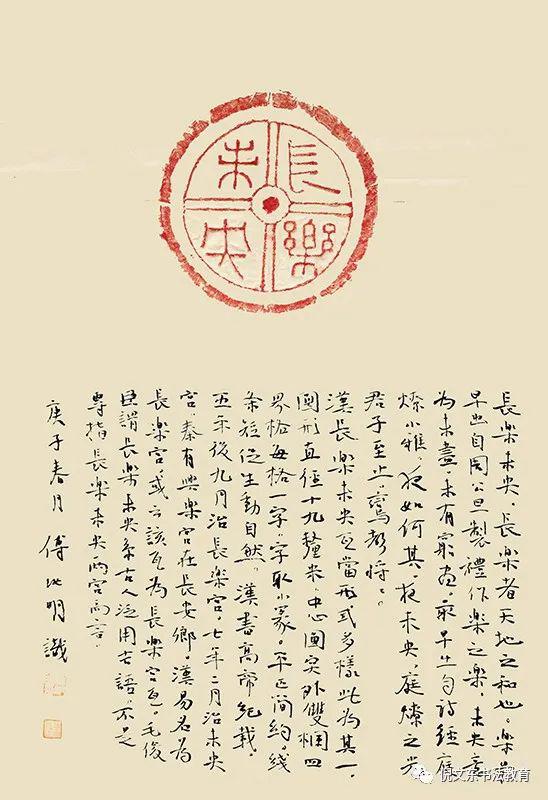 長樂
未央
長樂未央,長樂者天地之和也。樂
早出自周公旦製禮作樂之樂,未央意
為未盡、未有窮盡,最早出自詩經庭
燎小雅,夜如何其,夜未央,庭燎之光
君子至止,鸞聲將將。
漢長樂未央瓦當形式多樣此為其一,
圓形直徑十九釐米,中心圓突外雙欄四
界格每格一字,字取小篆,平正簡約,线
条短促生動自然。漢書高帝紀載,
五年後九月治長樂宮,七年二月治未央
宮,秦有興樂宮在長安鄉,漢易名為
長樂宮,或云該瓦為長樂宮瓦。毛俊
臣謂長樂未央系古人泛用吉語,不足
專指長樂未央兩宮而言。
庚子春月 傅如明識
倪文东书法教育